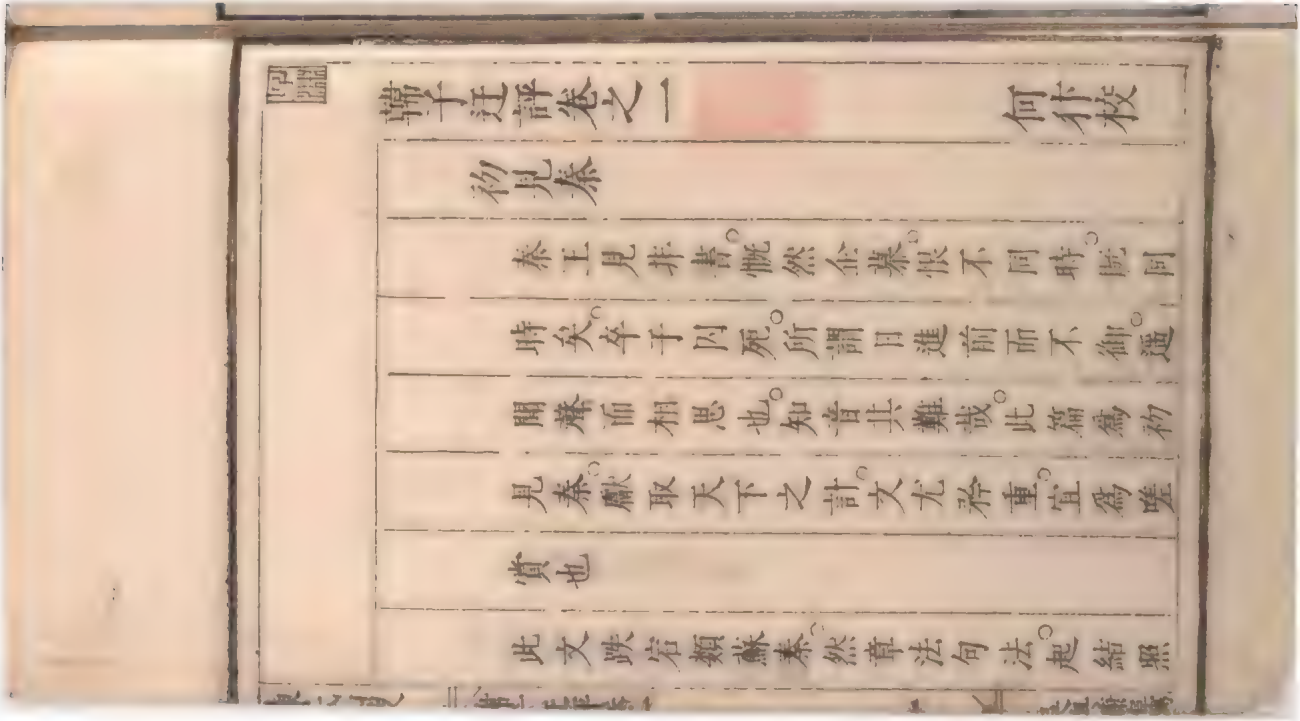 韓子迂評卷之一 何犿校
初見秦
秦王見非書。慨然企慕。恨不同時。既同
時矣。卒于囚死。所謂日進前而不御。遥
聞聲而相思也。知音其難哉。此篇爲初
見秦。獻取天下之計。文尤矜重。宜爲嗟
賞也
此文跌宕類蘇秦。然章法句法。起結照